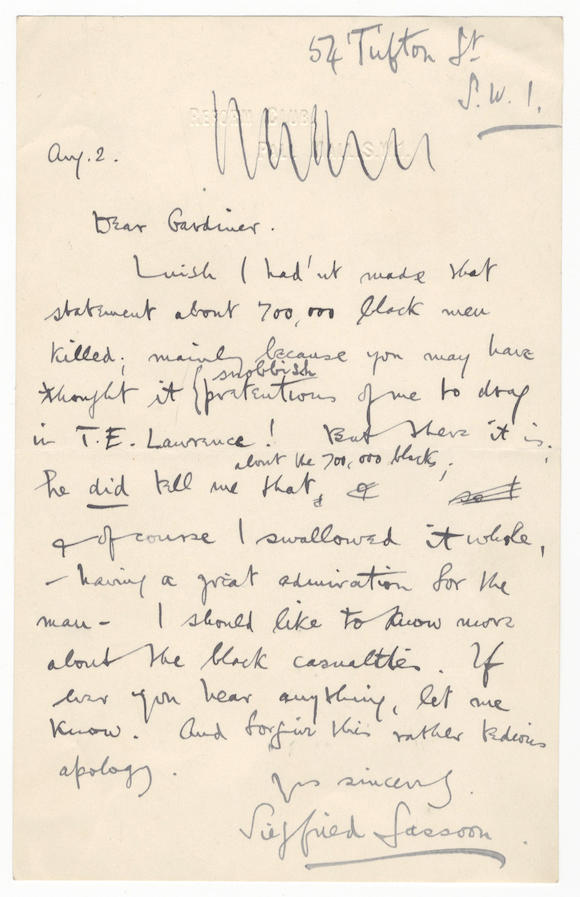 54 Tufton St
S.W.1.
REFORM CLUB,
PALL MALL, S.W.1.
Aug. 2.
Dear Gardiner.
I wish I had'nt made that
statement about 700,000 black men
killed; mainly because you may have
snobbish
thought it { pretentious of me to drag
in T.E. Lawrence! But there it is;
about the 700,000 blacks,
he did tell me that;
& of course I swallowed it whole,
– having a great admiration for the
man – I should like to know more
about the black casualties. If
ever you hear anything, let me
know. And forgive this rather tedious
apology.
Yrs sincerely.
Siegfried Sassoon.